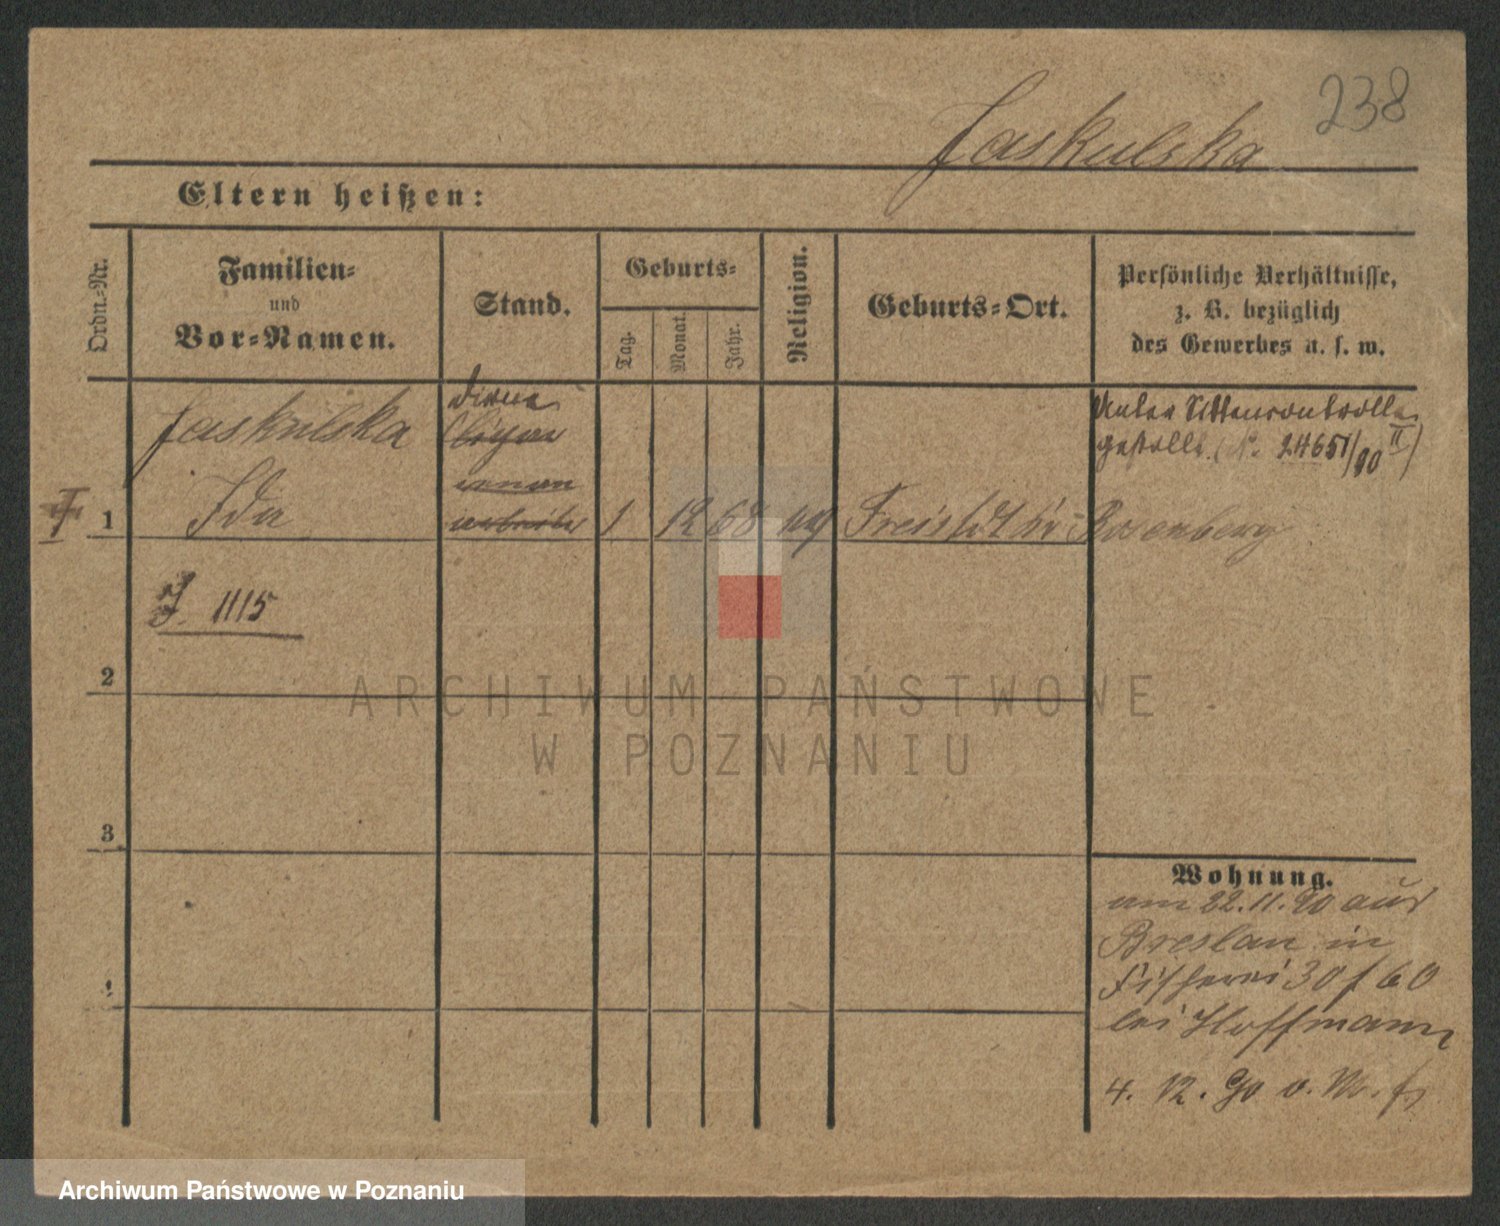 238
Jaskulska
Eltern heißen:
Ordn.-Nr.
Familien-
und
Vor-Namen.
Stand.
Geburts-
Tag.
Monat.
Jahr.
Religion.
Geburts-Ort.
Persönliche Verhältnisse,
z. B. bezüglich
des Gewerbes u. s. w.
Jaskulska
Ida
Dirne
Unter Sittencontrolle
gestellt. (N. 2465/90 II)
1
1 12 68
Freistadt Kr Rosenberg
J. 1115
2
ARCHIWUM PAŃSTWOWE
W POZNANIU
3
4
Wohnung.
am 22.11.90 aus
Breslau in
Fischerei 30 f 60
bei Hoffmann
4. 12. 90 v.
Archiwum Państwowe w Poznaniu